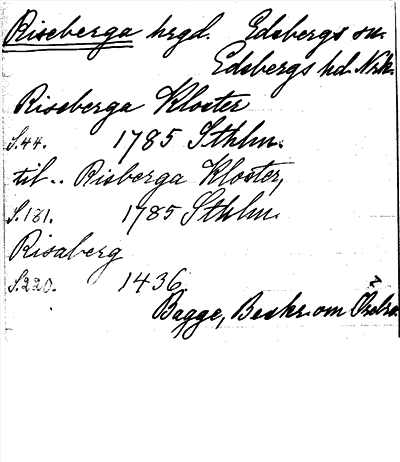 Riseberga hrgd. Edsbergs sn.
Edsbergs hd. Nrk.
Riseberga Kloster
S.44. 1785 Sthlm.
til.. Risberga Kloster,
S.181. 1785 Sthlm.
Risaberg
S.220. 1436.
Bagge, Beskr. om Örebro